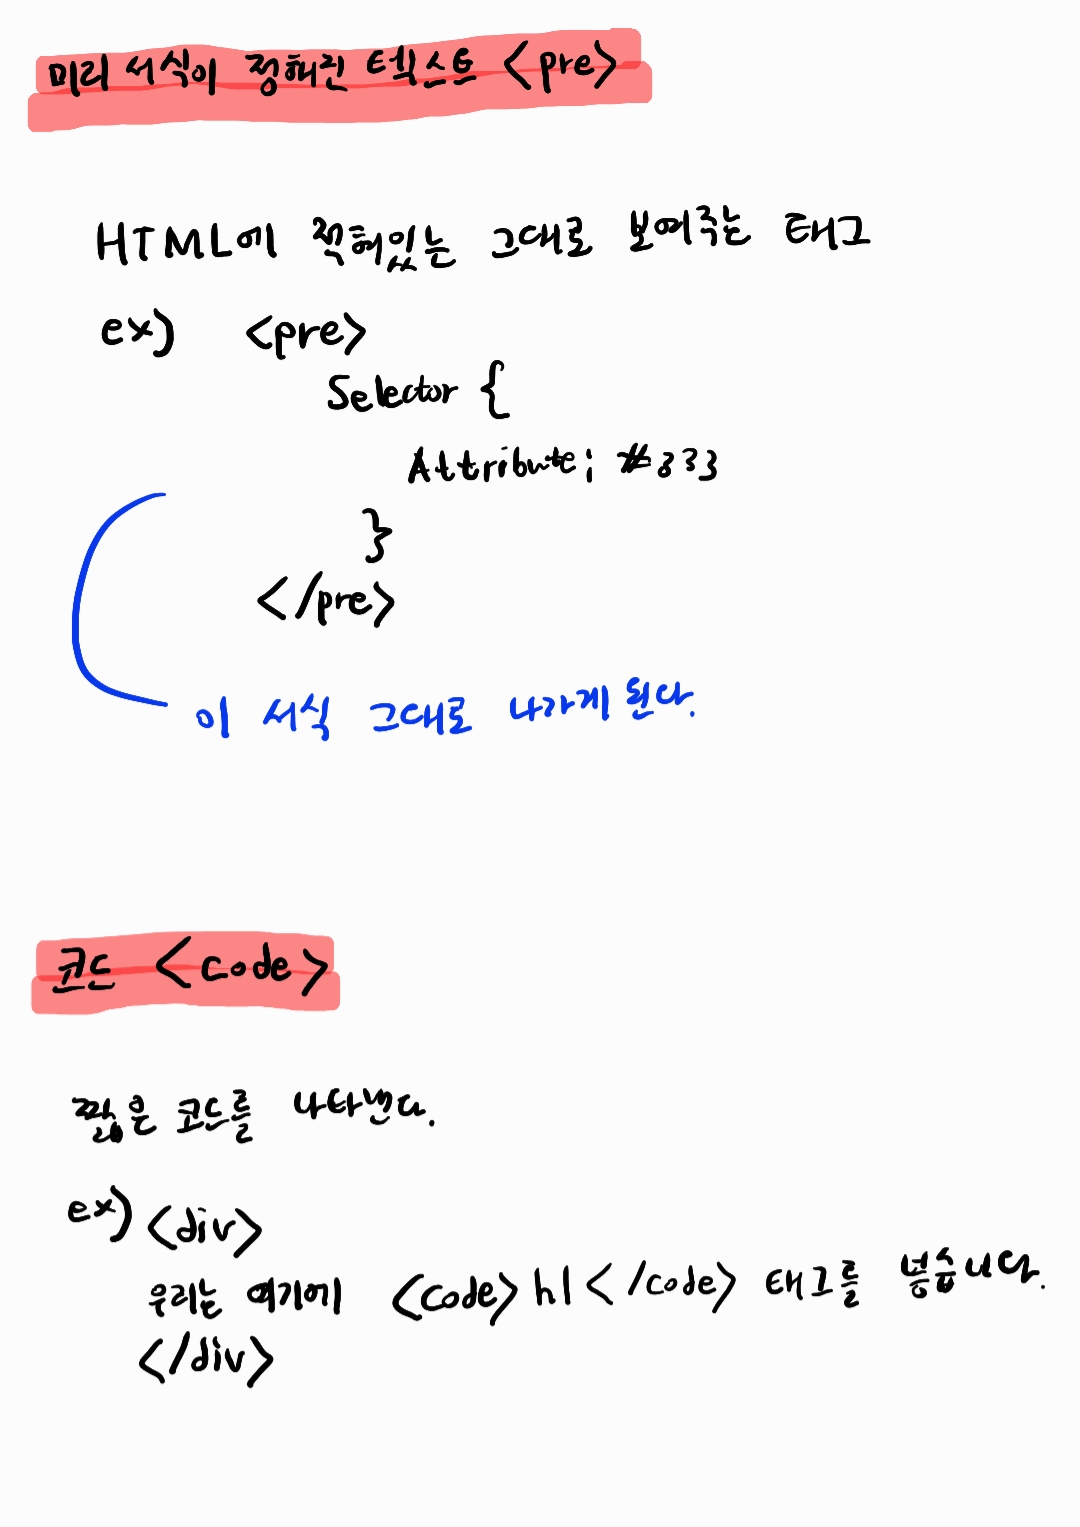 미리 서식이 정해진 텍스트 <pre>
HTML에 적혀있는 그대로 보여주는 태그
ex) <pre>
Selector {
Attribute; #333
}
</pre>
이 서식 그대로 나가게 된다.
코드 <code>
짧은 코드를 나타낸다.
ex) <div>
우리는 여기에 <code> h1 </code> 태그를 넣습니다.
</div>